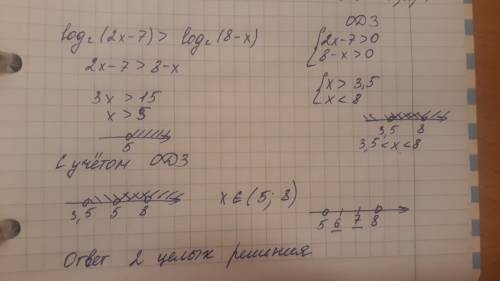 log₂(2x-7) > log₂(8-x)
2x-7 > 8-x
3x > 15
x > 5
5
С учётом ОДЗ
3,5 5 8
x ∈ (5; 8)
ОДЗ
{2x-7>0
{8-x>0
{x > 3,5
{x < 8
3,5 8
3,5 < x < 8
5 6 7 8
Ответ 2 целых решения